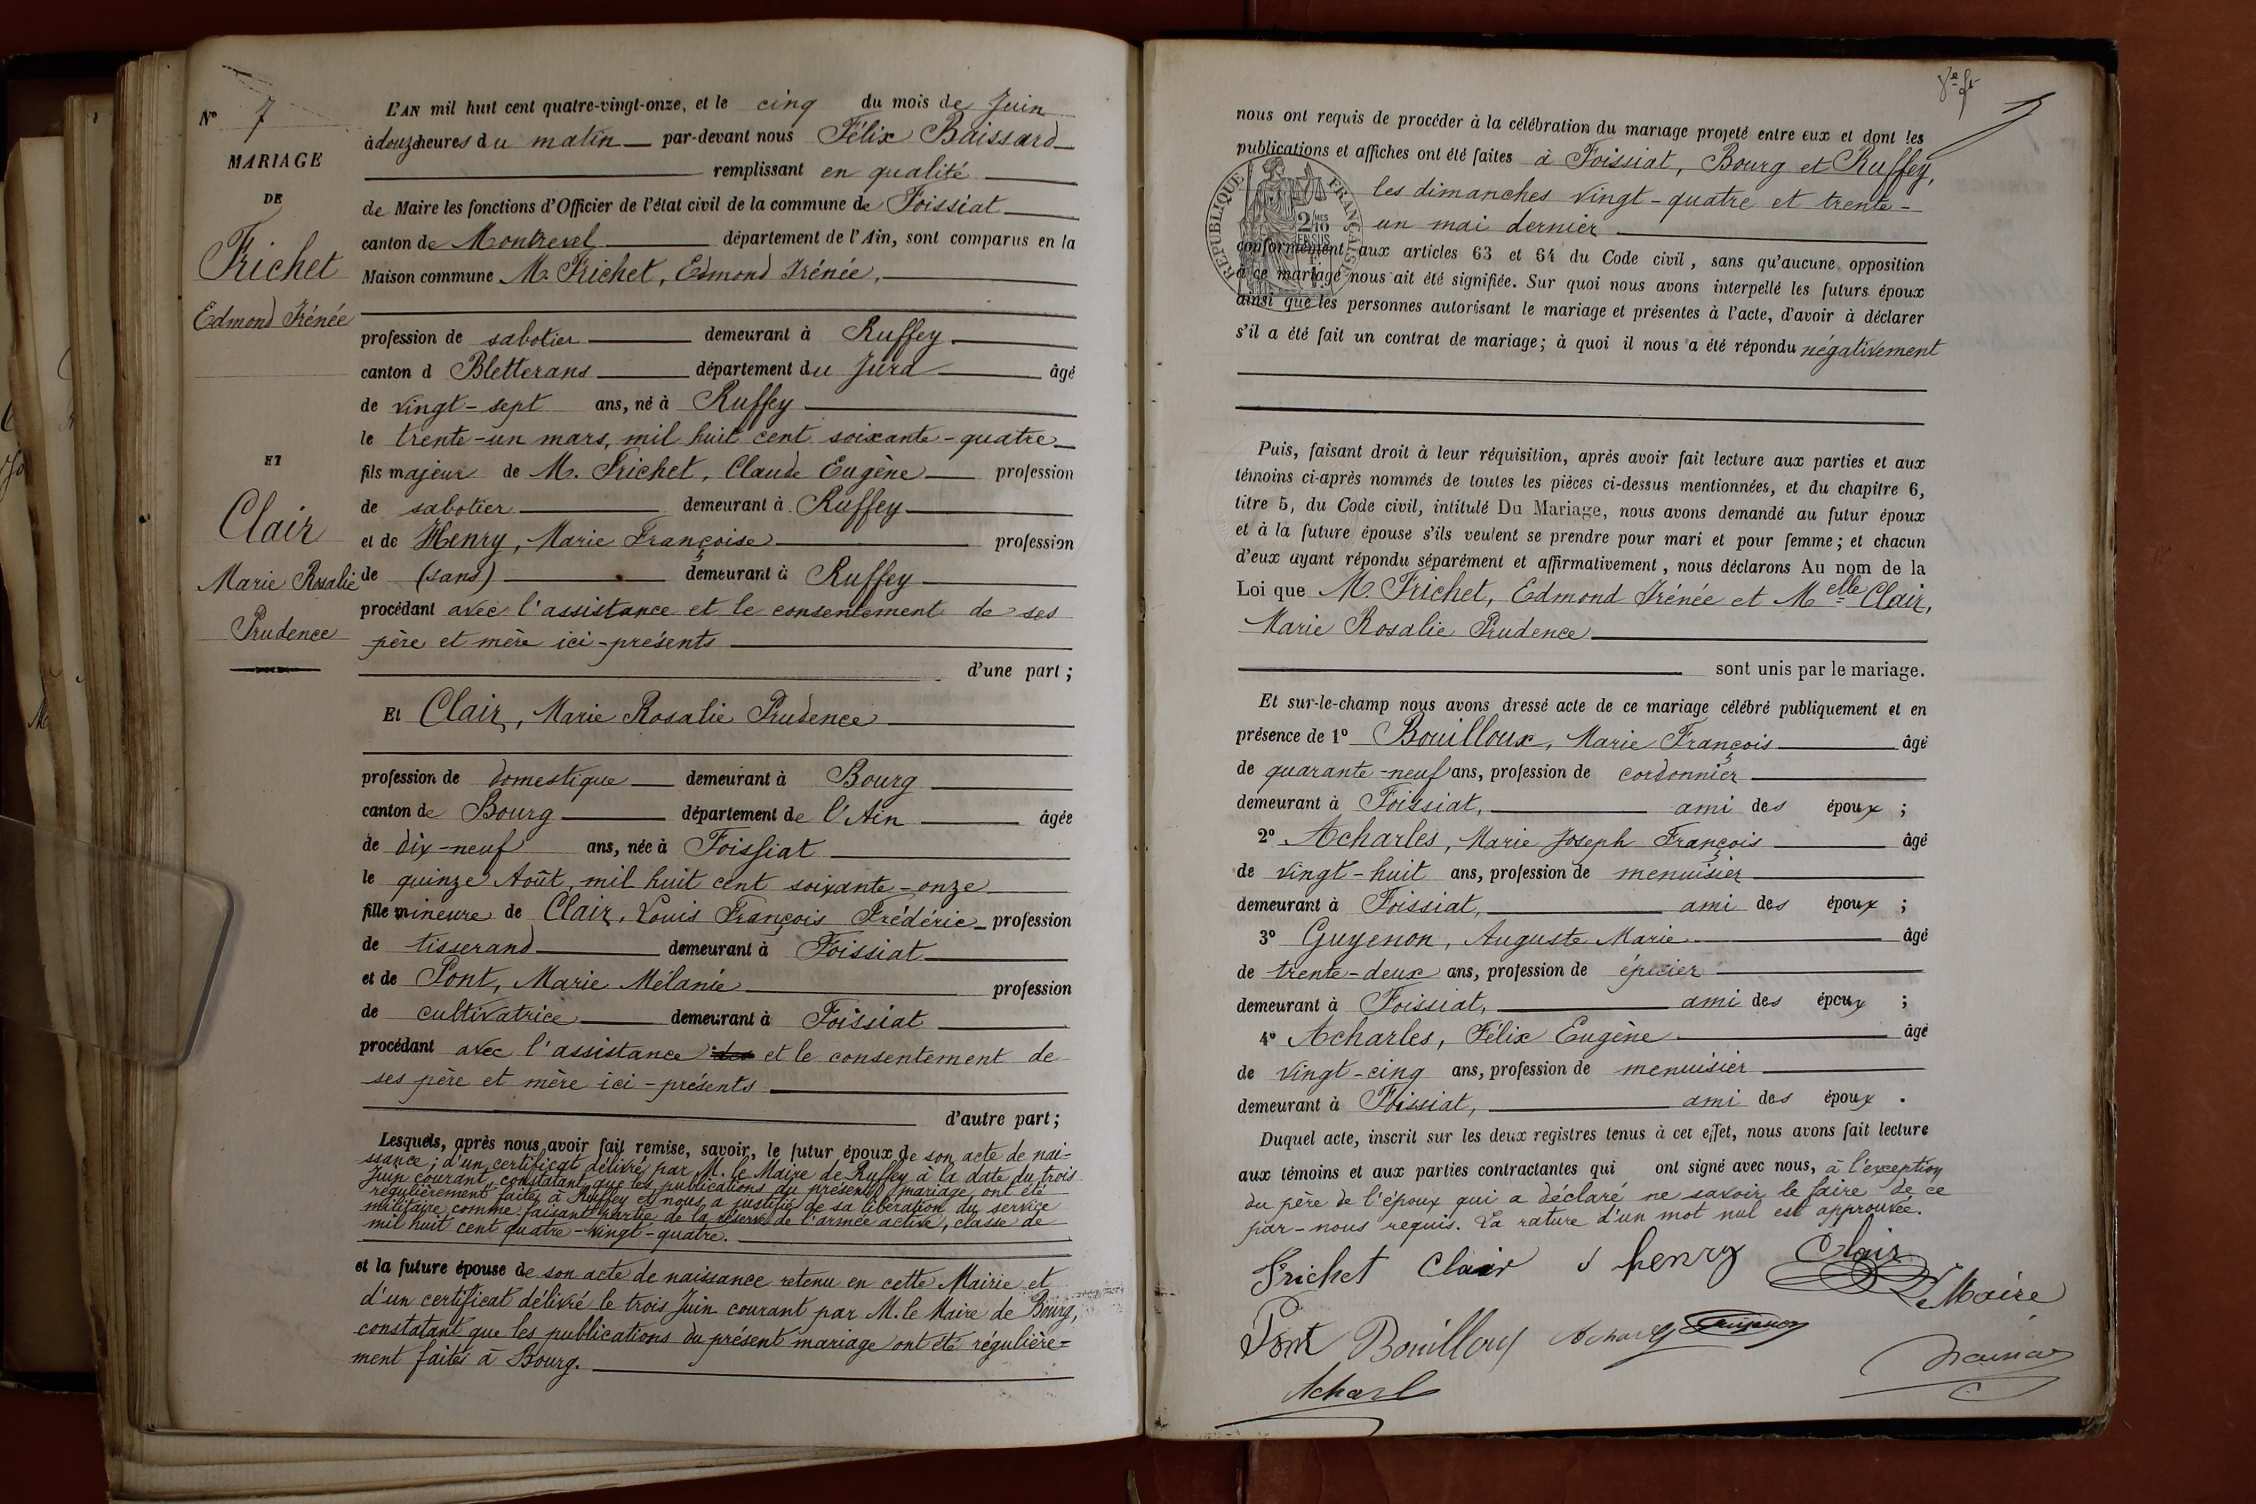 N° 7
MARIAGE
DE
Frichet
Edmond Irénée
ET
Clair
Marie Rosalie
Prudence
L'AN mil huit cent quatre-vingt-onze, et le cinq du mois de Juin
à douze heures du matin par-devant nous Félix Baissard
remplissant en qualité
de Maire les fonctions d'Officier de l'état civil de la commune de Foissiat
canton de Montrevel département de l'Ain, sont comparus en la
Maison commune M. Frichet, Edmond Irénée,
profession de sabotier demeurant à Ruffey
canton d Bletterans département du Jura âgé
de vingt-sept ans, né à Ruffey
le trente-un mars, mil huit cent soixante-quatre
fils majeur de M. Frichet, Claude Eugène profession
de sabotier demeurant à Ruffey
et de Henry, Marie Françoise profession
de (sans) demeurant à Ruffey
procédant avec l'assistance et le consentement de ses
père et mère ici-présents
d'une part ;
Et Clair, Marie Rosalie Prudence
profession de domestique demeurant à Bourg
canton de Bourg département de l'Ain âgée
de dix-neuf ans, née à Foissiat
le quinze Août, mil huit cent soixante-onze
fille mineure de Clair, Louis François Frédéric profession
de tisserand demeurant à Foissiat
et de Pont, Marie Mélanie profession
de cultivatrice demeurant à Foissiat
procédant avec l'assistance et le consentement de
ses père et mère ici-présents
d'autre part ;
Lesquels, après nous avoir fait remise, savoir, le futur époux de son acte de nai-
ssance ; d'un certificat délivré par M. le Maire de Ruffey à la date du trois
Juin courant, constatant que les publications du présent mariage ont été
régulièrement faites à Ruffey et nous a justifié de sa libération du service
militaire comme faisant partie de la réserve de l'armée active, classe de
mil huit cent quatre-vingt-quatre.
et la future épouse de son acte de naissance retenu en cette Mairie et
d'un certificat délivré le trois Juin courant par M. le Maire de Bourg,
constatant que les publications du présent mariage ont été régulière=
ment faites à Bourg.
nous ont requis de procéder à la célébration du mariage projeté entre eux et dont les
publications et affiches ont été faites à Foissiat, Bourg et Ruffey,
les dimanches vingt-quatre et trente-
un mai dernier
conformément aux articles 63 et 64 du Code civil, sans qu'aucune opposition
à ce mariage nous ait été signifiée. Sur quoi nous avons interpellé les futurs époux
ainsi que les personnes autorisant le mariage et présentes à l'acte, d'avoir à déclarer
s'il a été fait un contrat de mariage ; à quoi il nous a été répondu négativement
RÉPUBLIQUE FRANÇAISE
2/10
EN SUS
Puis, faisant droit à leur réquisition, après avoir fait lecture aux parties et aux
témoins ci-après nommés de toutes les pièces ci-dessus mentionnées, et du chapitre 6,
titre 5, du Code civil, intitulé Du Mariage, nous avons demandé au futur époux
et à la future épouse s'ils veulent se prendre pour mari et pour femme ; et chacun
d'eux ayant répondu séparément et affirmativement, nous déclarons Au nom de la
Loi que M. Frichet, Edmond Irénée et Melle Clair,
Marie Rosalie Prudence
sont unis par le mariage.
Et sur-le-champ nous avons dressé acte de ce mariage célébré publiquement et en
présence de 1° Bouilloux, Marie François âgé
de quarante-neuf ans, profession de cordonnier
demeurant à Foissiat, ami des époux ;
2° Acharles, Marie Joseph François âgé
de vingt-huit ans, profession de menuisier
demeurant à Foissiat, ami des époux ;
3° Guyenon, Auguste Marie âgé
de trente-deux ans, profession de épicier
demeurant à Foissiat, ami des époux ;
4° Acharles, Félix Eugène âgé
de vingt-cinq ans, profession de menuisier
demeurant à Foissiat, ami des époux .
Duquel acte, inscrit sur les deux registres tenus à cet effet, nous avons fait lecture
aux témoins et aux parties contractantes qui ont signé avec nous, à l'exception
du père de l'époux qui a déclaré ne savoir le faire de ce
par-nous requis. La rature d'un mot nul est approuvée.
Frichet Clair henry Clair
Le Maire
Pont Bouilloux Acharles Guyenon
Acharl